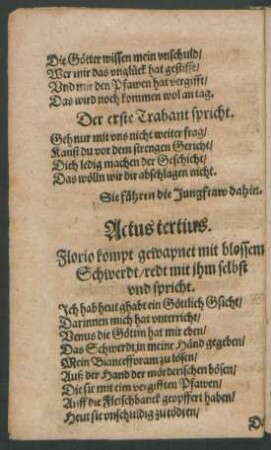 Die Götter wissen mein vnschuld/
Wer mir das vnglück hat gestifft/
Vnd mir den Pfawen hat vergifft/
Das wird noch kommen wol an tag.
Der erste Trabant spricht.
Geh nur mit vns nicht weiter frag/
Kanst du vor dem strengen Gericht/
Dich ledig machen der Geschicht/
Das wölln wir dir abschlagen nicht.
Sie führen die Jungfraw dahin.
Actus tertius.
Florio kompt gewapnet mit blossem
Schwerdt/ redt mit jhm selbst
vnd spricht.
Ich hab heut ghabt ein Göttlich Gsicht/
Darinnen mich hat vnterricht/
Venus die Göttin hat mir eben/
Das Schwerdt, in meine Händ gegeben/
Mein Biancefforam zu lösen/
Auß der Hand der mörderischen bösen/
Die sie mit eim vergifften Pfawen/
Auff die Fleischbanck geopffert haben/
Heut sie vnschuldig zu tödten/